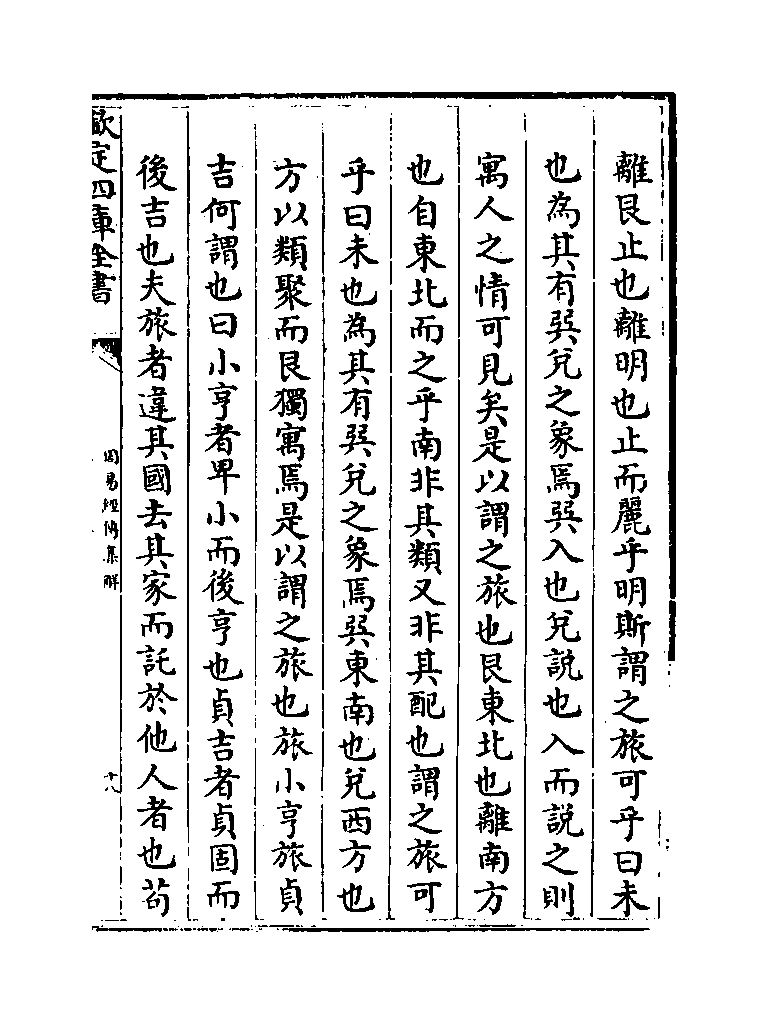 離艮止也離明也止而麗乎明斯謂之旅可乎曰未
也為其有巽兌之象焉巽入也兌說也入而說之則
寓人之情可見矣是以謂之旅也艮東北也離南方
也自東北而之乎南非其類又非其配也謂之旅可
乎曰未也為其有巽兌之象焉巽東南也兌西方也
方以類聚而艮獨寓焉是以謂之旅也旅小亨旅貞
吉何謂也曰小亨者畀小而後亨也貞吉者貞固而
後吉也夫旅者違其國去其家而託於他人者也茍
欽定四庫全書
周易經傳集解
十八